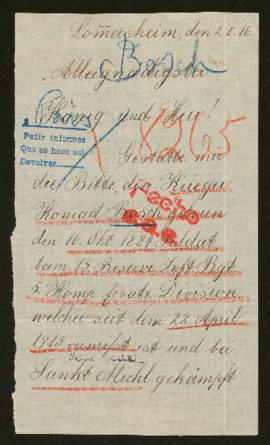 Lommersheim, den 2.8.16.
Bosch
Allergnädigster
König und Herr!
París
Pedir informes
Que se hace así
Devolver
1865
Gestatte mir
die Bitte, den Krieger
Konrad Bosch geboren
den 10. Okt. 1887 Soldat
beim 15. Reserve Inft. Rgt.
5. Komp. Ersatz Division
welcher seit dem 22. April
1915 vermisst ist und bei
Sankt Michl gekämpft